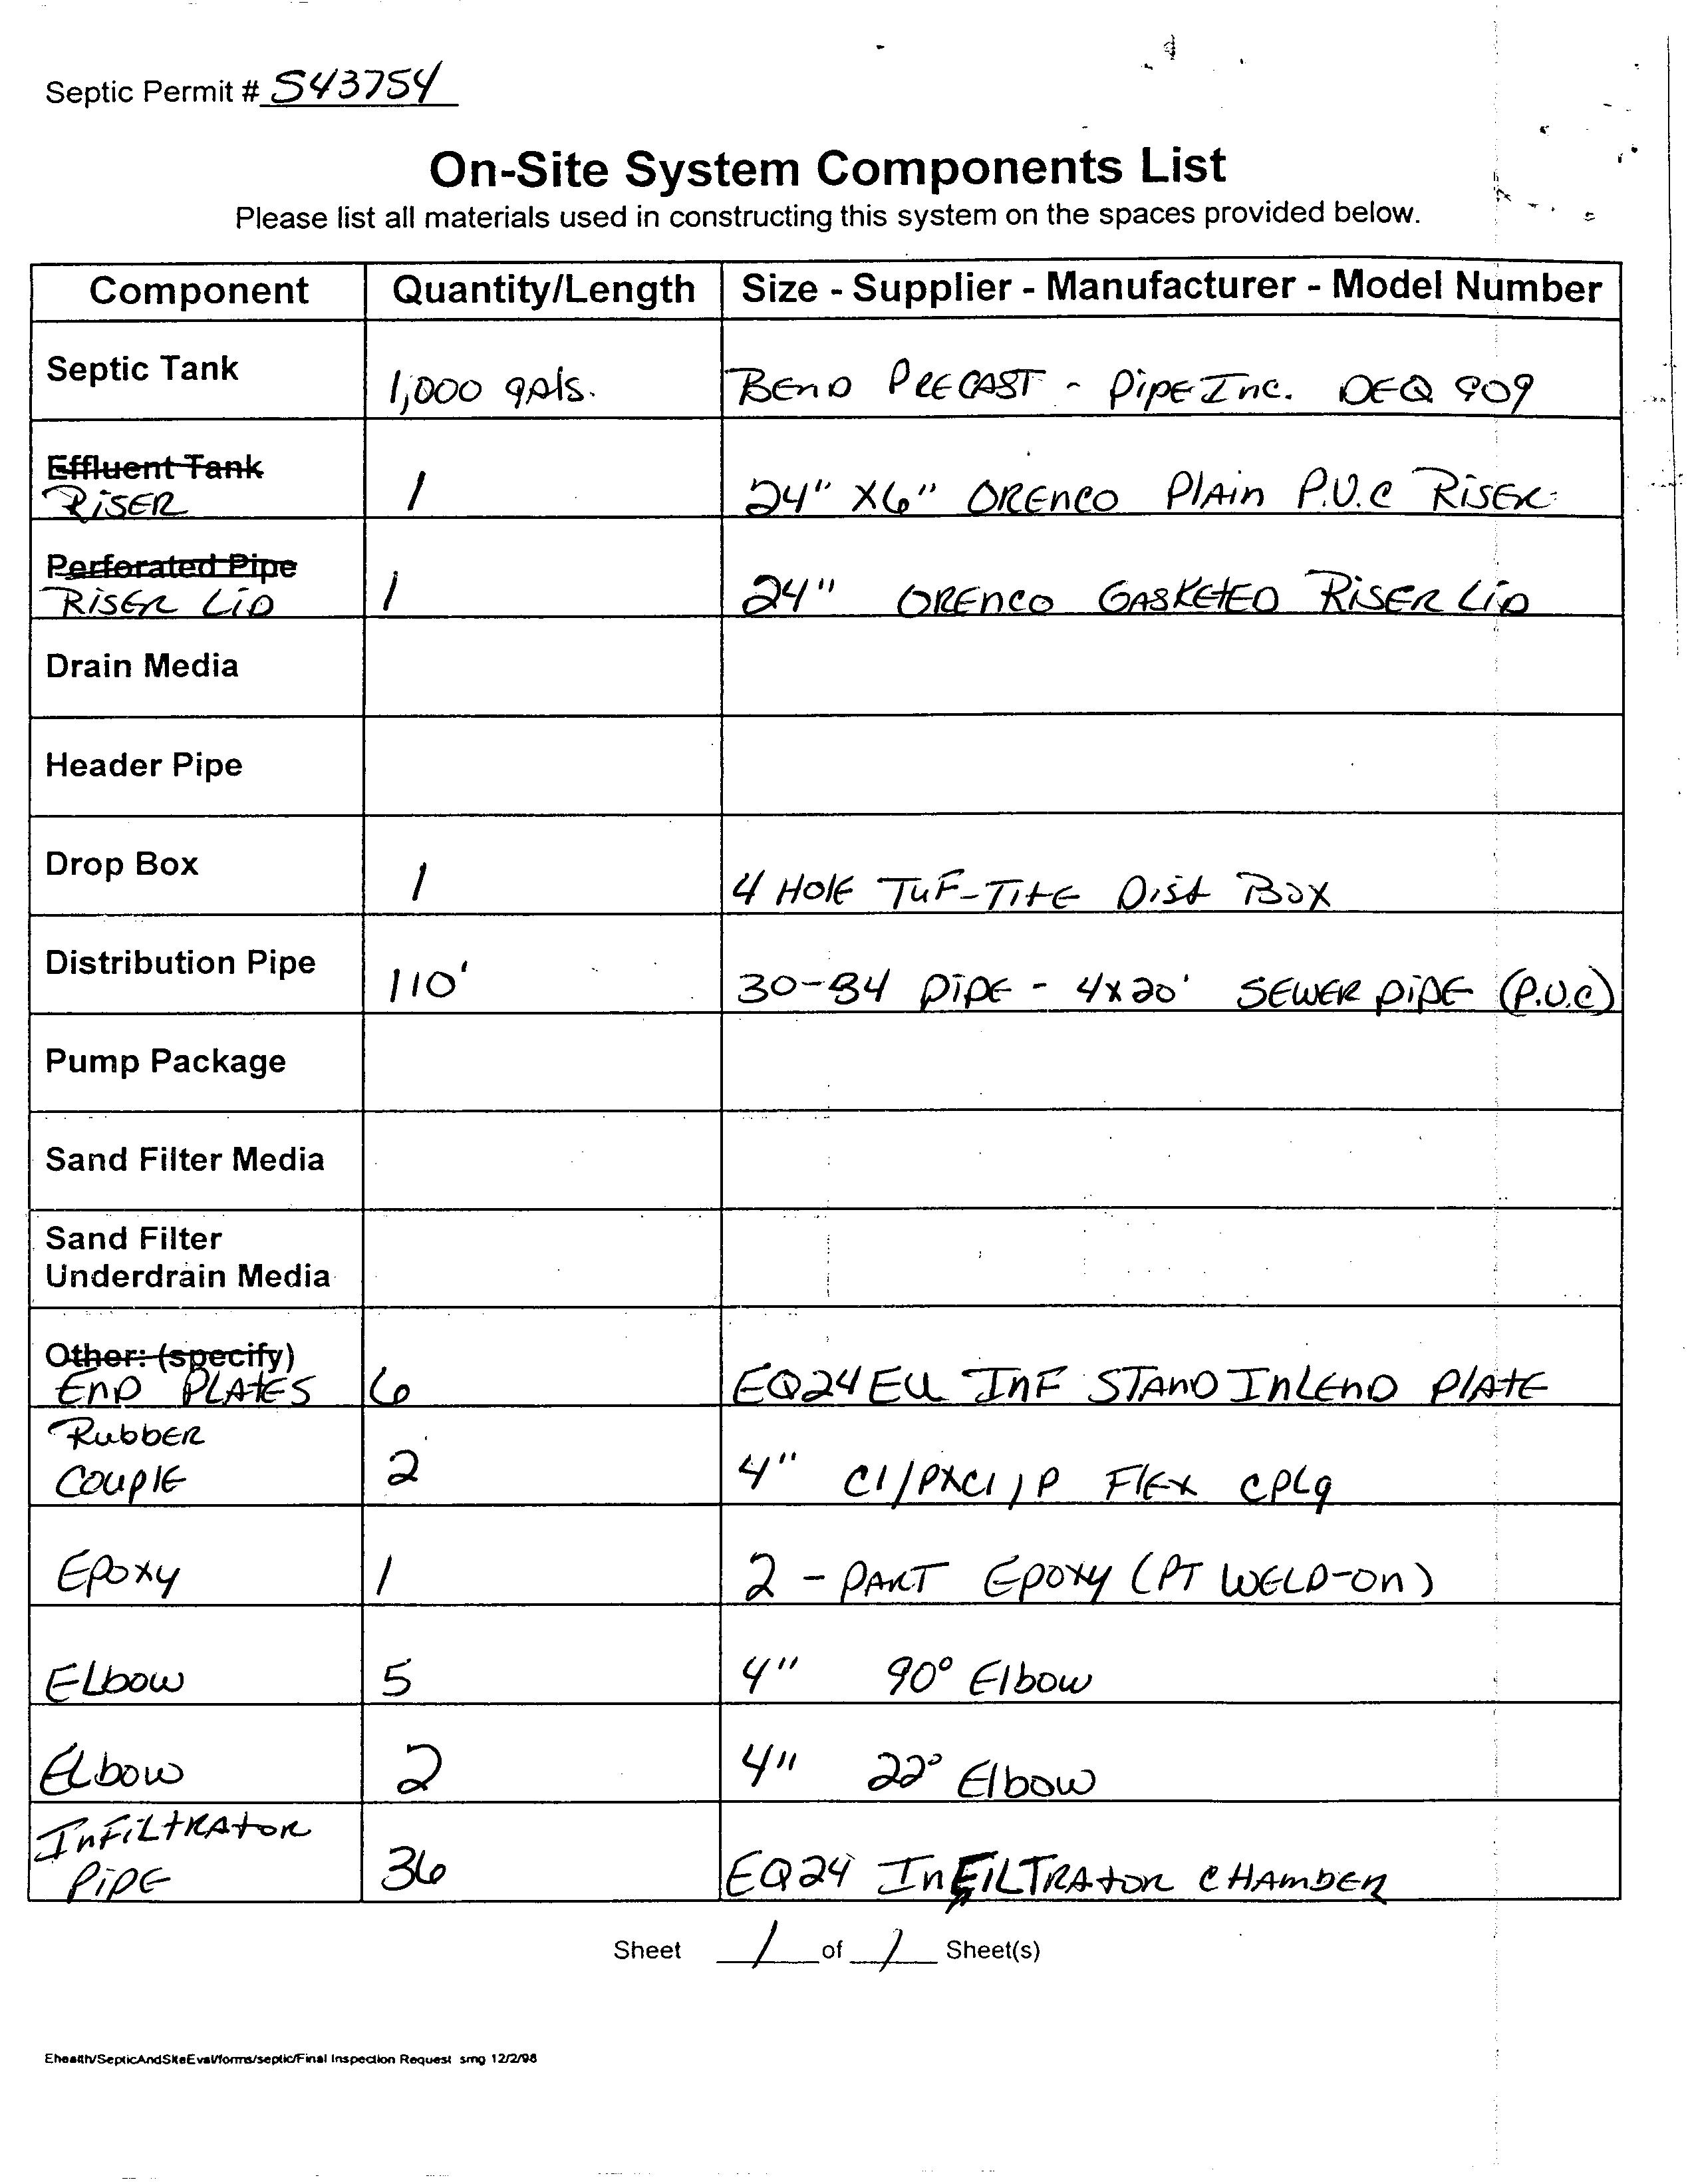 Septic Permit # S43754
On-Site System Components List
Please list all materials used in constructing this system on the spaces provided below.
Component Quantity/Length Size - Supplier - Manufacturer - Model Number
Septic Tank 1,000 gals. Bend Precast - Pipe Inc. DEQ 909
Effluent Tank
Riser 1 24" x6" Orenco Plain P.V.C Riser
Perforated Pipe
Riser Lid 1 24" Orenco Gasketed Riser Lid
Drain Media
Header Pipe
Drop Box 1 4 Hole Tuf-Tite Dist Box
Distribution Pipe 110' 30-34 pipe - 4x20' Sewer pipe (P.V.C)
Pump Package
Sand Filter Media
Sand Filter
Underdrain Media
Other: (specify)
End Plates 6 EQ24EU Inf Stand Inlend Plate
Rubber
Couple 2 4" CI/PXCI/P Flex Cplg
Epoxy 1 2 - Part Epoxy (PT Weld-on)
Elbow 5 4" 90° Elbow
Elbow 2 4" 22° Elbow
Infiltrator
Pipe 36 EQ24 Infiltrator Chamber
Sheet 1 of 1 Sheet(s)
Ehealth/SepticAndSiteEval/forms/septic/Final Inspection Request smg 12/2/98